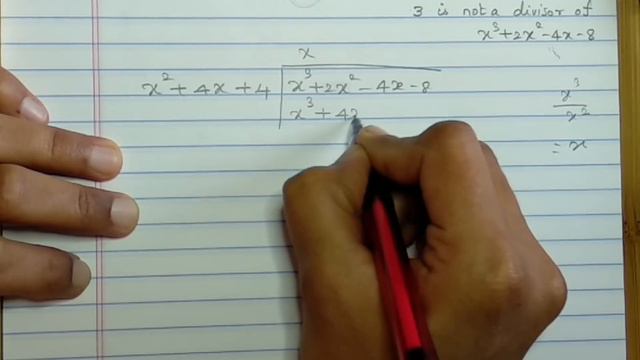 3 is not a divisor of
x³+2x²-4x-8
x
x²+4x+4
x³+2x²-4x-8
x³+4
x³
x²
= x